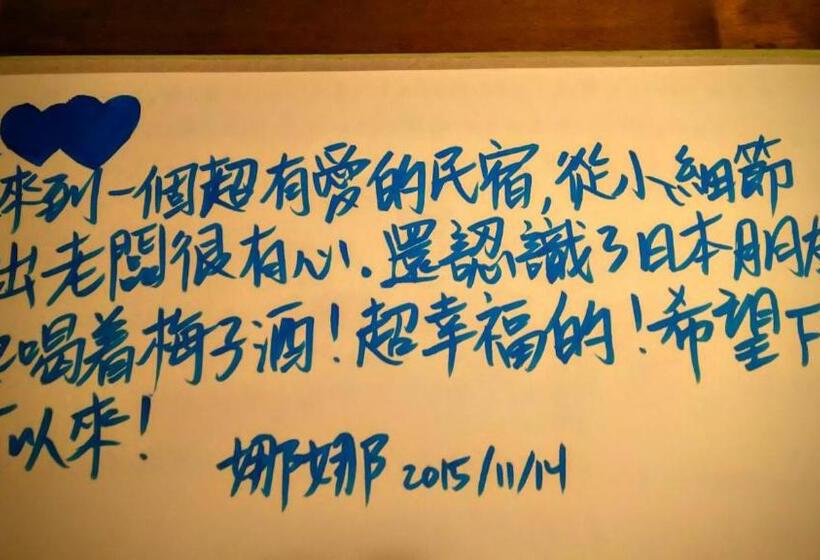 來到一個超有愛的民宿,從小細節
出老闆很有心.還認識了日本朋友
喝着梅子酒!超幸福的!希望下
以來!
娜娜 2015/11/14